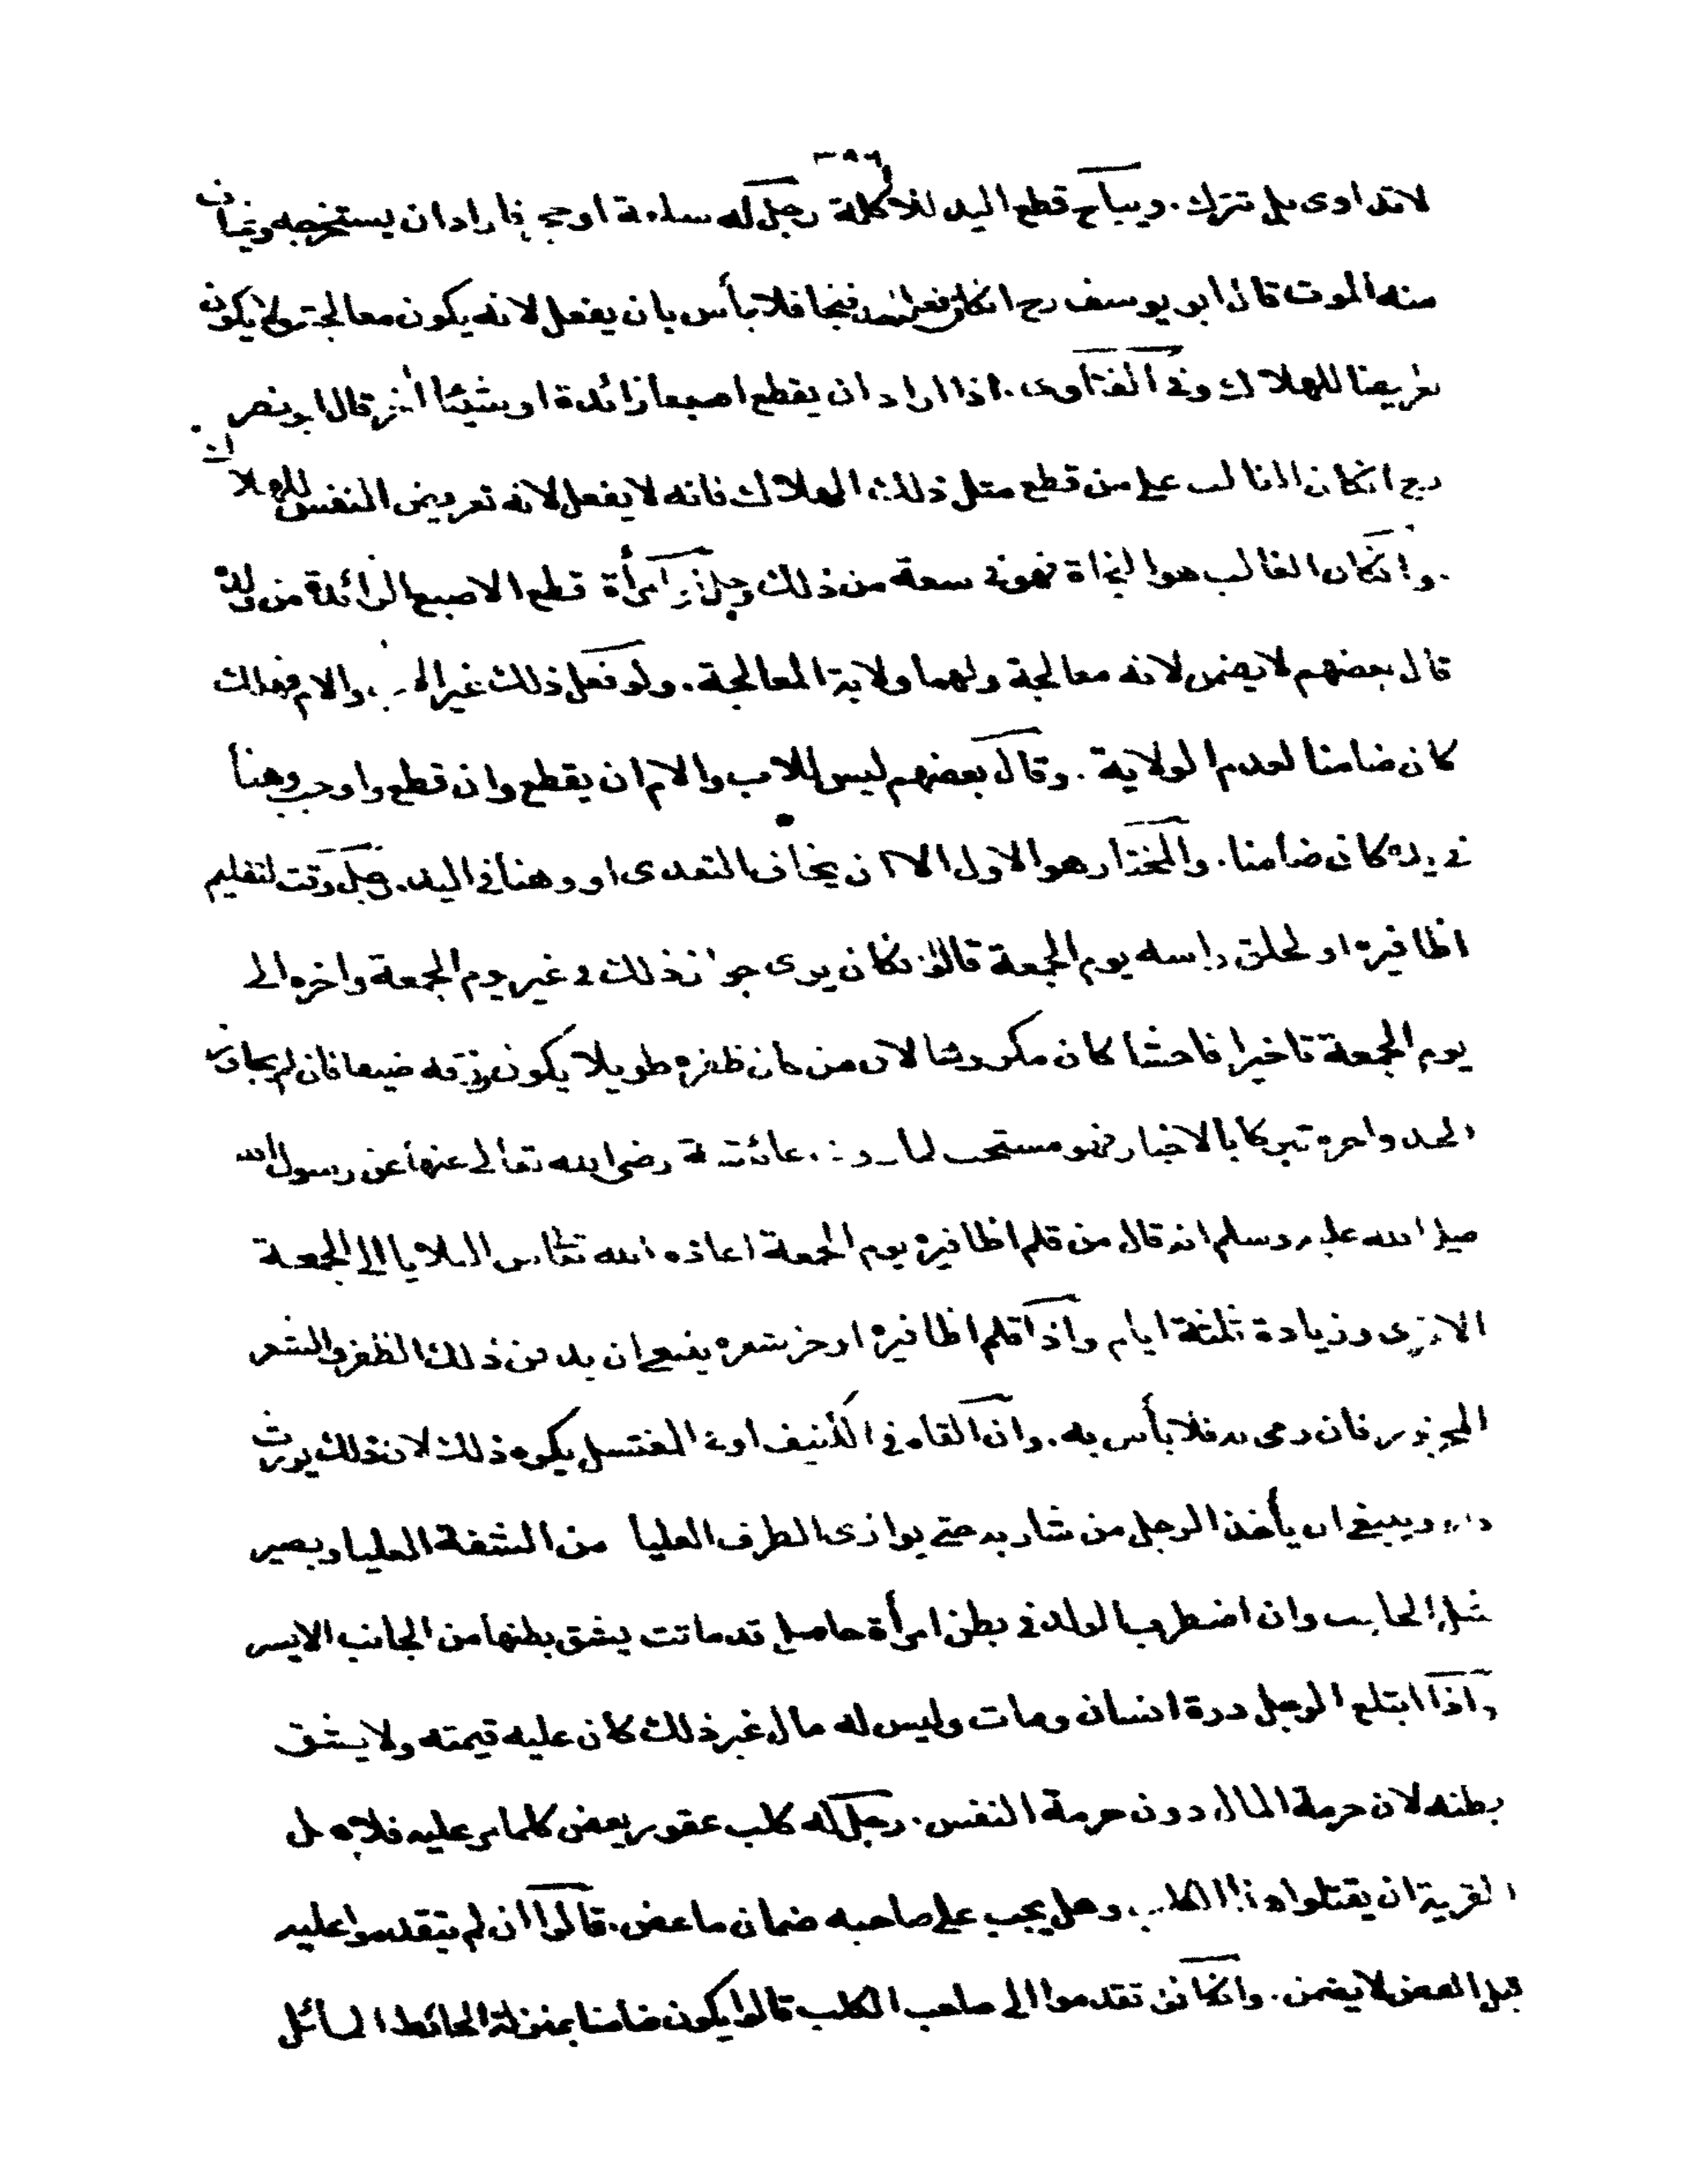 لا تداوى بل تترك. ويباح قطع اليد للاكلة رجل له سلعة او حجر فاراد ان يستخرجه ويخاف
منه الموت قال ابو يوسف رح انكان فعل فنجا فلا بأس بان يفعل لانه يكون معالجة ولا يكون
تعريضا للهلاك وفي الفتاوى. اذا اراد ان يقطع اصبعا زائدة او شيئا اخر قال ابو نصر
رح انكان الغالب على من قطع مثل ذلك الهلاك فانه لا يفعل لانه تعريض النفس للهلاك
وانكان الغالب هو النجاة فهو في سعة من ذلك رجل او امرأة قطع الاصبع الزائدة من ولده
قال بعضهم لا يضمن لانه معالجة ولهما ولاية المعالجة. ولو فعل ذلك غير الاب والام فهلك
كان ضامنا لعدم الولاية. وقال بعضهم ليس للاب والام ان يقطع وان قطع واوجب وهنأ
في يده كان ضامنا. والمختار هو الاول الا ان يخاف التعدى او وهنأ في اليد. رجل وقت لتقليم
اظافيره او لحلق رأسه يوم الجمعة قالوا انكان يرى جواز ذلك في غير يوم الجمعة واخره الى
يوم الجمعة تاخيرا فاحشا كان مكروها لان من كان ظفره طويلا يكون رزقه ضيقا فان لم يجاوز
الحد واخره تبركا بالاخبار فهو مستحب لما روت عائشة رضى الله تعالى عنها عن رسول الله
صلى الله عليه وسلم انه قال من قلم اظافيره يوم الجمعة اعاذه الله تعالى من البلايا الى الجمعة
الاخرى وزيادة ثلثة ايام واذا قلم اظافيره او جز شعره ينبغى ان يدفن ذلك الظفر والشعر
المجزوز فان رمى به فلا بأس به. وان القاه في الكنيف او في المغتسل يكره ذلك لان ذلك يورث
داء وينبغى ان يأخذ الرجل من شاربه حتى يوازى الطرف العليا من الشفة العليا ويصير
مثل الحاجب وان اضطرب الولد في بطن امرأة حامل قد ماتت يشق بطنها من الجانب الايسر
واذا ابتلع الرجل درة انسان ومات وليس له مال غير ذلك كان عليه قيمته ولا يشق
بطنه لان حرمة المال دون حرمة النفس. رجل له كلب عقور يعض كلما مر عليه فلاهل
القرية ان يقتلوا هذا الكلب. وهل يجب على صاحبه ضمان ما عض. قالوا ان لم يتقدموا عليه
قبل العض لا يضمن. وانكانوا تقدموا الى صاحب الكلب قالوا يكون ضامنا بمنزلة الحائط المائل